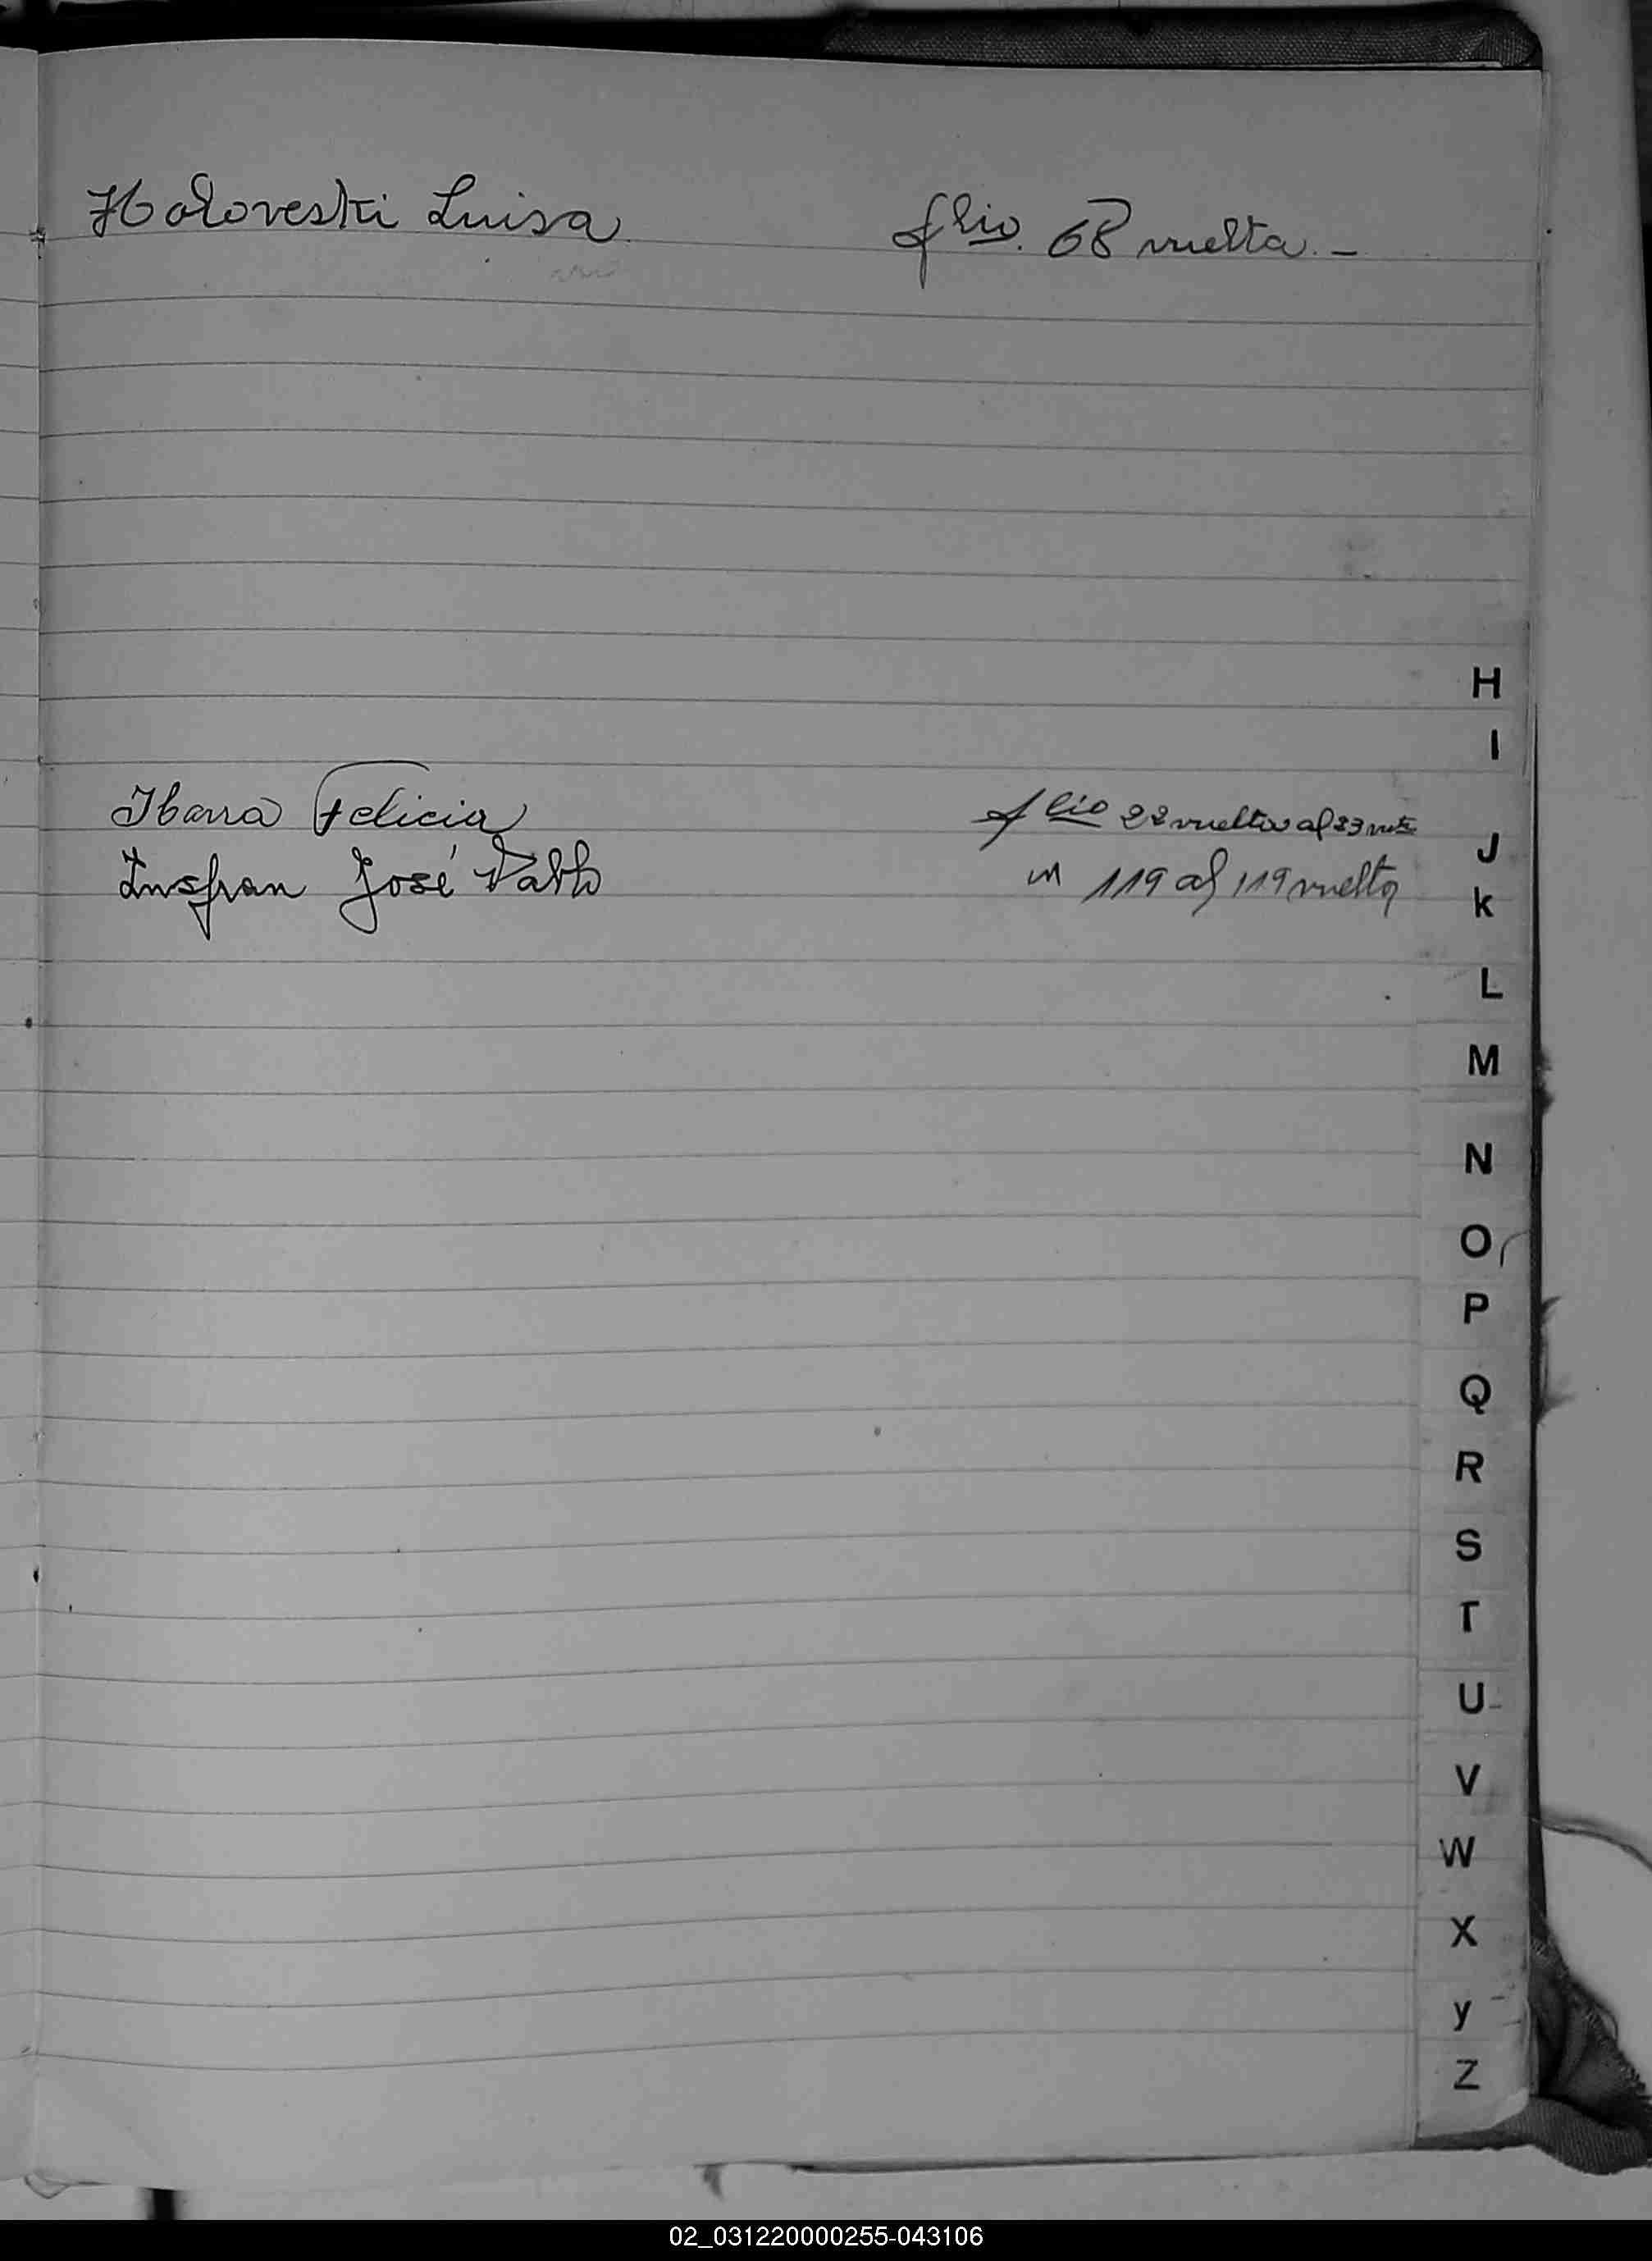 Holoveski Luisa flio. 68 vuelta. -
H
I
Ibarra Felicia flio 22 vuelta al 23 vta
J
Insfran José Pablo " 119 al 119 vuelta
K
L
M
N
O
P
Q
R
S
T
U
V
W
X
y
Z
02_031220000255-043106